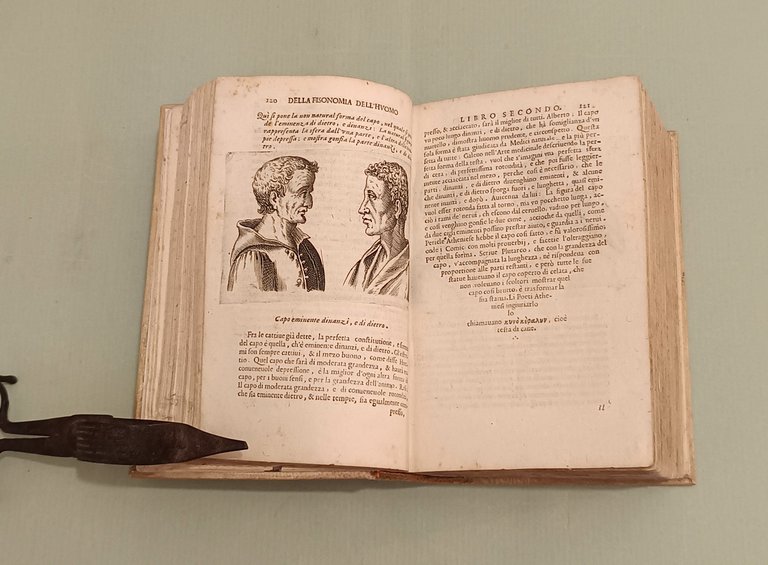 120 DELLA FISONOMIA DELL'HVOMO
Quì si pone la non natural forma del capo, nel quale si
de l'eminenza di dietro, e dinanzi: La natural
rapresenta la sfera dall'vna parte, e l'altra
pie depressa: e mostra gonfia la parte dinanzi, e di die-
tro.
Capo eminente dinanzi, e di dietro.
Fra le cattiue già dette, la perfetta constitutione, e
del capo è quella, ch'è eminente dinanzi, e di dietro. Gli
mi son sempre cattiui, & il mezo buono, come disse
tio. Quel capo che sarà di moderata grandezza, & haurà
conueneuole depressione, è la miglior d'ogni altra
capo, per i buoni sensi, e per la grandezza dell'animo.
Il capo di moderata grandezza, e di conueneuole rotondità,
che sia eminente dietro, & nelle tempre, sia egualmente com-
presso,
LIBRO SECONDO. 121
presso, & attaccato, sarà il miglior di tutti. Alberto. Il capo
vn poco lungo dinanzi, e di dietro, che hà somiglianza d'un
martello, dimostra huomo prudente, e circonspetto. Questa
sola forma è stata giudicata da Medici naturale, e la più per-
fetta di tutte. Galeno nell'Arte medicinale descriuendo la per-
fetta forma della testa, vuol che s'imagini vna perfetta sfera
di cera, di perfettissima rotondità, e che poi fusse leggier-
mente acciaccata nel mezo, perche così è necessario, che le
parti, dinanzi, e di dietro diuenghino eminenti, & alcune
volte, dinanzi, e di dietro sporga fuori, e lunghetta, quasi emi-
nente inanzi, e dopò. Auicenna dà lui: La figura del capo
vuol esser rotonda fatta al torno, ma vn pocchetto lunga, ac-
ciò i rami de' nerui, ch'escono dal ceruello, vadino per lungo,
e così venghino gonfie le due cime, accioche da quelli, come
da duo cigli eminenti possino prestar aiuto, e guardia a i nerui.
Pericle Atheniese hebbe il capo così fatto, e fù valorosissimo,
onde i Comici con molti prouerbij, e facetie l'oltraggiano,
per questa forma. Scriue Plutarco, che con la grandezza del
capo, v'accompagnata la lunghezza, nè rispondena con
proportione alle parti restanti, e però tutte le sue
statue haueuano il capo coperto di celata, che
non voleuano i scoltori mostrar quel
capo così brutto, è trasformar la
sua statua. Li Poeti Athe-
niesi ingiuriarlo
lo
chiamauano κυνοκέφαλον, cioè
testa di cane.